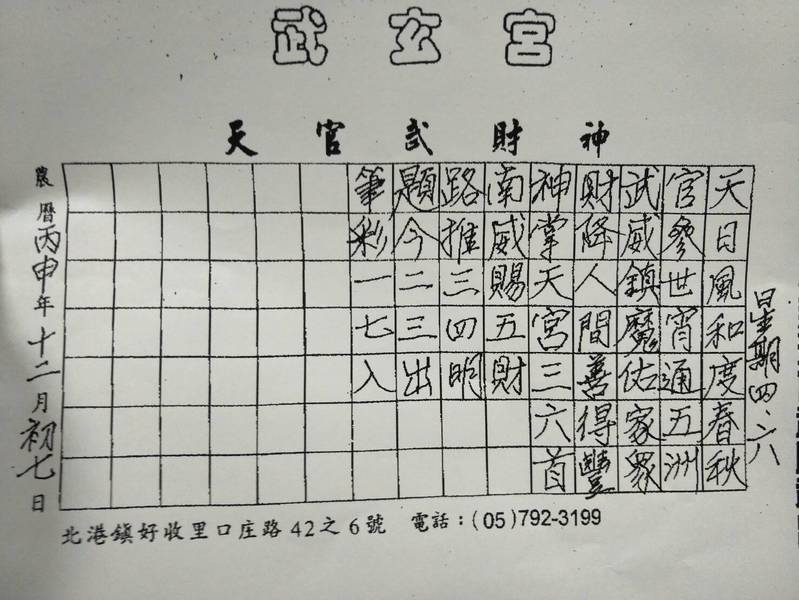 武玄宮
天官武財神
星期四、六
天日風和度春秋
官參世宵通五洲
武威鎮魔佑家眾
財降人間善得豐
神掌天宮三六首
南威賜五財
路推三四明
題今二三出
筆彩一七入
農曆丙申年十二月初七日
北港鎮好收里口庄路42之6號 電話：(05)792-3199